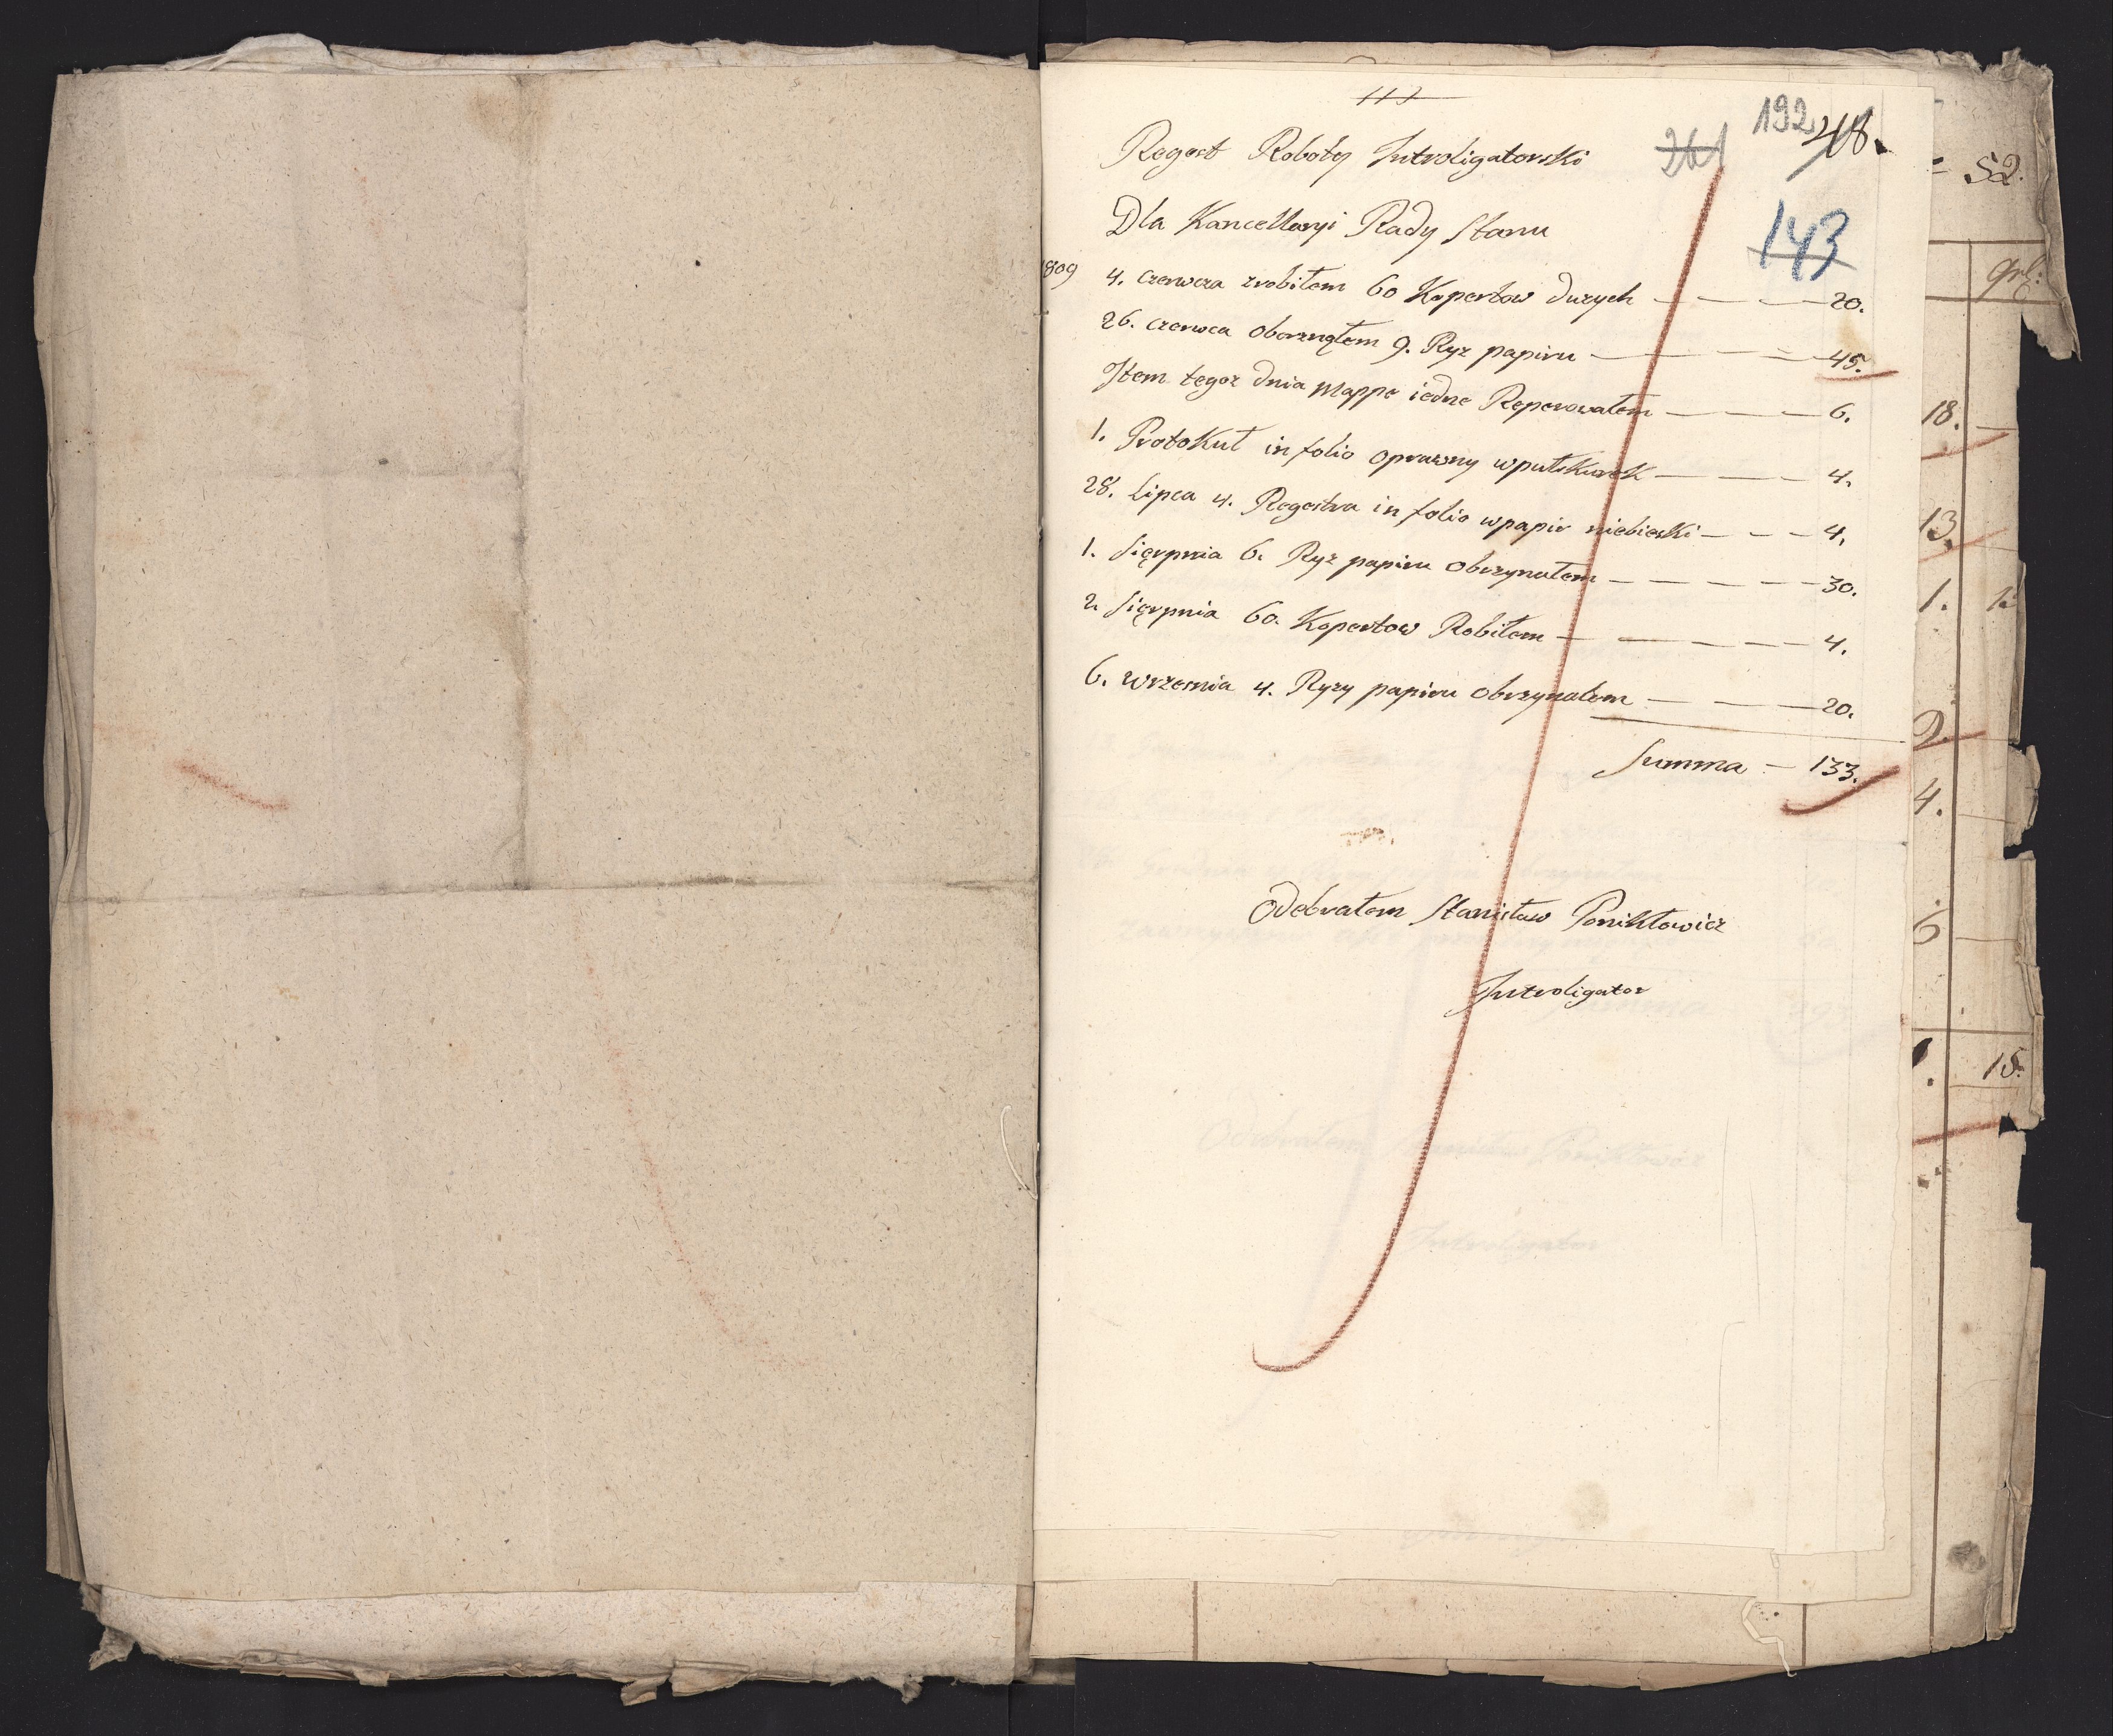 113
192
261
48.
143
Regest Roboty Introligatorski
Dla Kancellaryi Rady Stanu
809
4. Czerwca zrobiłem 60 Kopertow duzych — — — — 20.
26. Czerwca oberznąłem 9. Ryz papiru — — — — 45.
Item tegoz dnia Mappe iedne Reperowałem — — — 6.
1. Protokuł in folio oprawny wpułskurek — — — 4.
28. Lipca 4. Regestra in folio wpapir niebieski — — — 4.
1. Sięrpnia 6. Ryz papiru obrzynałem — — — — 30.
2. Sięrpnia 60. Kopertow Robiłem — — — — 4.
6. Wrzesnia 4. Ryzy papiru obrzynalem — — — 20.
Summa — 133.
Odebrałem Stanisław Ponikłowicz
Introligator
52.
18.
13.
1.
2.
4.
6
15.